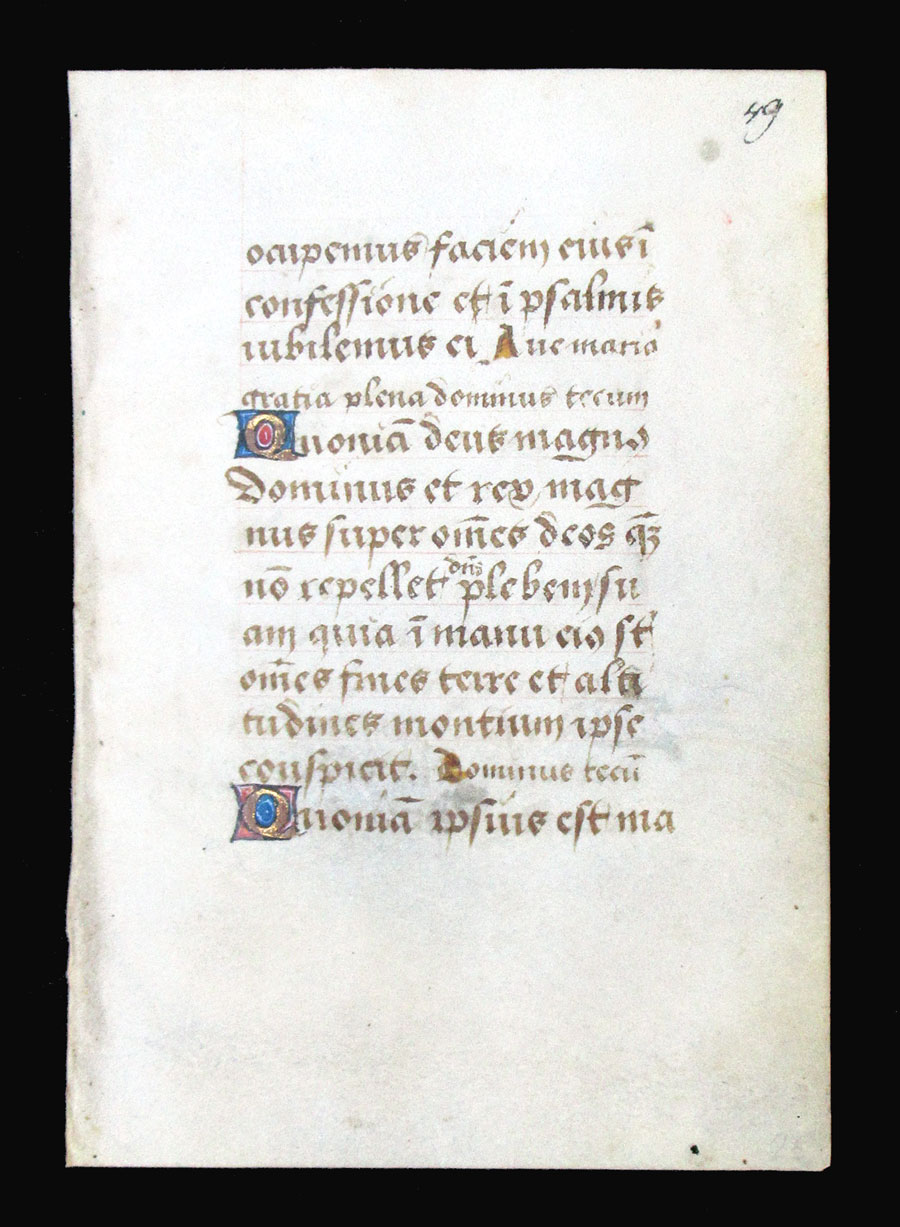 49
ocupemus faciem eius ī
confessione et ī psalmis
iubilemus ei Aue maria
gratia plena dominus tecum
Quoniā deus magnus
dominus et rex mag
nus super om̄es deos qm̄
nō repellet dn̄s plebem su
am quia ī manu eius st̄
om̄es fines terre et alti
tudines montium ipse
conspicit. Dominus tecū
Quoniā ipsius est ma